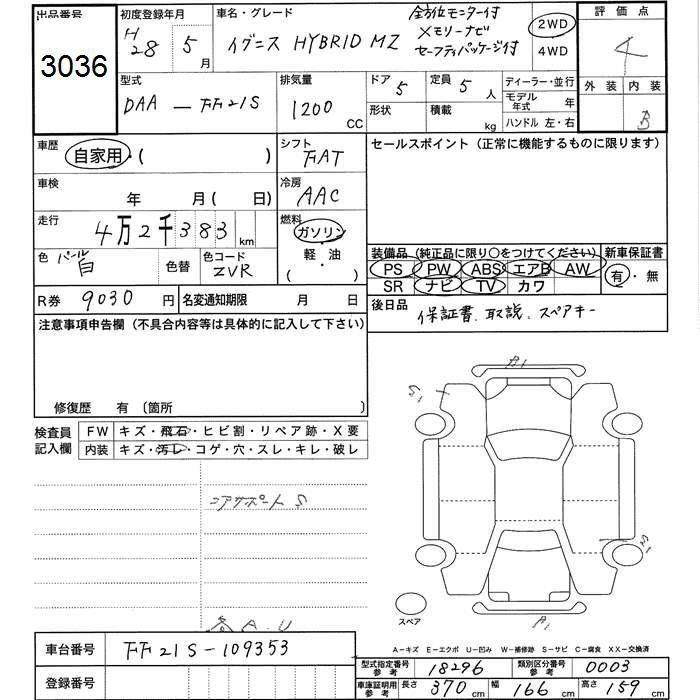 出品番号 3036
初度登録年月 H28 5月
車名・グレード イグニス HYBRID MZ
全方位モニター付
メモリーナビ
セーフティパッケージ付
2WD
4WD
評価点 4
外装 内装 B
型式 DAA-FF21S
排気量 1200 CC
ドア 5
形状
定員 5 人
積載 kg
ディーラー・並行
モデル年式 年
ハンドル 左・右
車歴 自家用・( )
シフト FAT
セールスポイント(正常に機能するものに限ります)
車検 年 月( 日)
冷房 AAC
走行 4万2千383km
燃料 ガソリン
軽・油
( )
色 パール白 色替 色コード ZVR
装備品(純正品に限り○をつけてください)
PS PW ABS エアB AW
SR ナビ TV カワ
新車保証書 有・無
R券 9030円 名変通知期限 月 日
後日品 保証書、取説、スペアキー
注意事項申告欄(不具合内容等は具体的に記入して下さい)
修復歴 有 〔箇所 〕
検査員記入欄
FW キズ・飛石・ヒビ割・リペア跡・X要
内装 キズ・汚レ・コゲ・穴・スレ・キレ・破レ
コアサポート S
A1
S1
S1
A1
スペア
A-キズ E-エクボ U-凹み W-補修跡 S-サビ C-腐食 XX-交換済
各A.U
車台番号 FF21S-109353
登録番号
型式指定番号 参考 18296 類別区分番号 参考 0003
車庫証明用 参考 長さ 370cm 幅 166cm 高さ 159cm